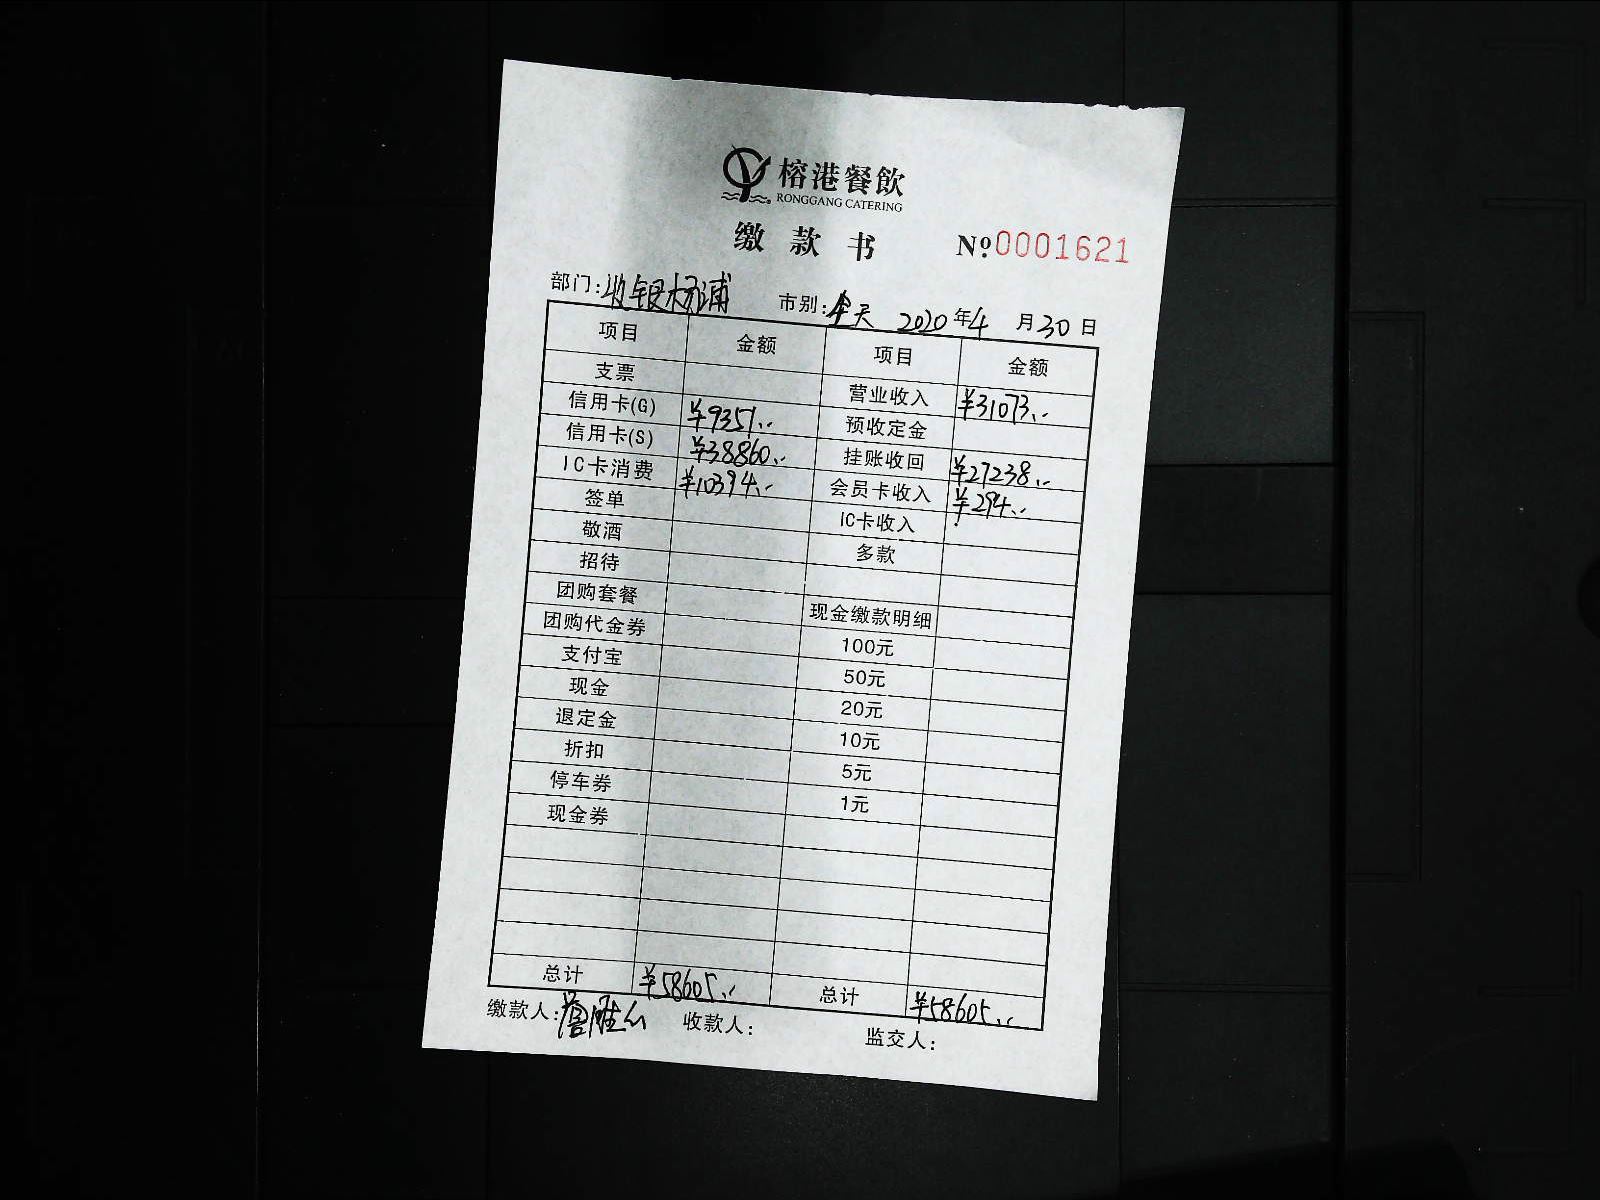 榕港餐飲
RONGGANG CATERING
缴款书 №0001621
部门:收银杨浦 市别:全天 2020年4月30日
项目 金额 项目 金额
支票 营业收入 ¥31073..
信用卡(G) ¥9351.. 预收定金
信用卡(S) ¥38860.. 挂账收回 ¥27238..
IC卡消费 ¥10394.. 会员卡收入 ¥294..
签单 IC卡收入
敬酒 多款
招待
团购套餐 现金缴款明细
团购代金券 100元
支付宝 50元
现金 20元
退定金 10元
折扣 5元
停车券 1元
现金券
总计 ¥58605.. 总计 ¥58605..
缴款人: 收款人: 监交人: